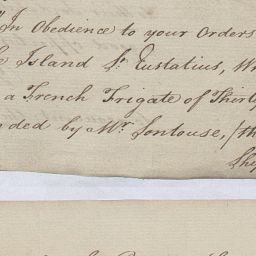 "In Obedience to your Orders
Island St. Eustatius, W
a French Frigate of Thirty
ded by Mr. Fontouse, /th
Ship